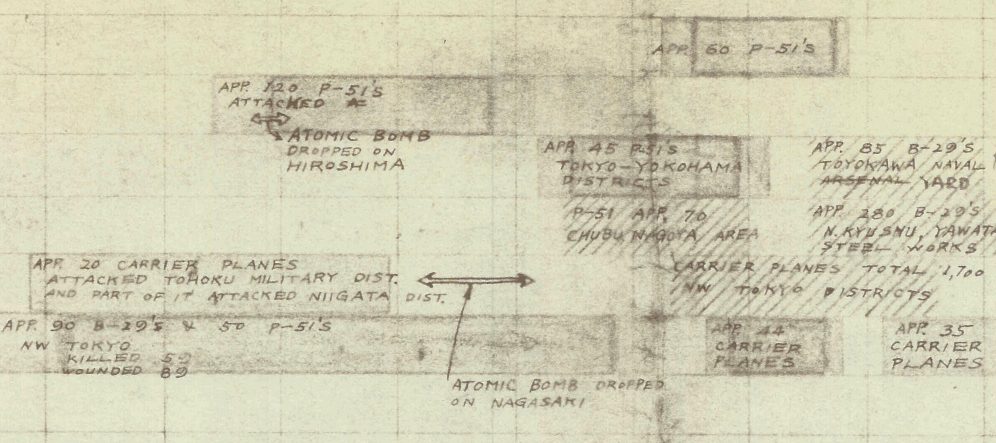 APP. 60 P-51'S
APP. 120 P-51'S
ATTACKED
ATOMIC BOMB
DROPPED ON
HIROSHIMA
APP. 45 P-51'S
TOKYO-YOKOHAMA
DISTRICTS
APP. 85 B-29'S
TOYOKAWA NAVAL
ARSENAL YARD
P-51 APP. 70
CHUBU NAGOYA AREA
APP. 280 B-29'S
N. KYUSHU, YAWATA
STEEL WORKS
APP. 20 CARRIER PLANES
ATTACKED TOHOKU MILITARY DIST.
AND PART OF IT ATTACKED NIIGATA DIST.
CARRIER PLANES TOTAL 1,700
NW TOKYO DISTRICTS
APP. 90 B-29'S & 50 P-51'S
NW TOKYO
KILLED 59
WOUNDED 89
APP. 44
CARRIER
PLANES
APP. 35
CARRIER
PLANES
ATOMIC BOMB DROPPED
ON NAGASAKI